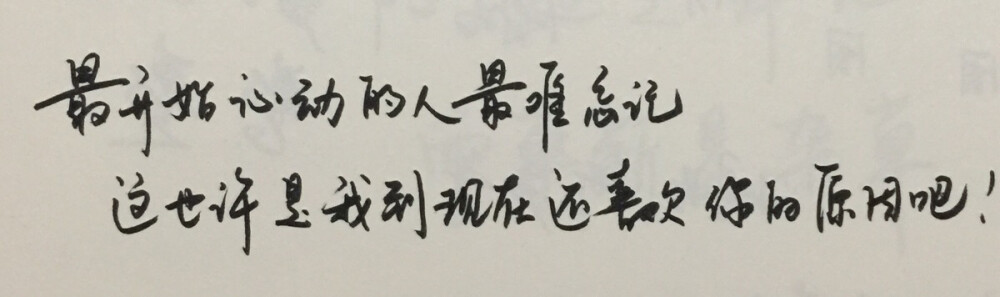 最开始心动的人最难忘记
这也许是我到现在还喜欢你的原因吧！